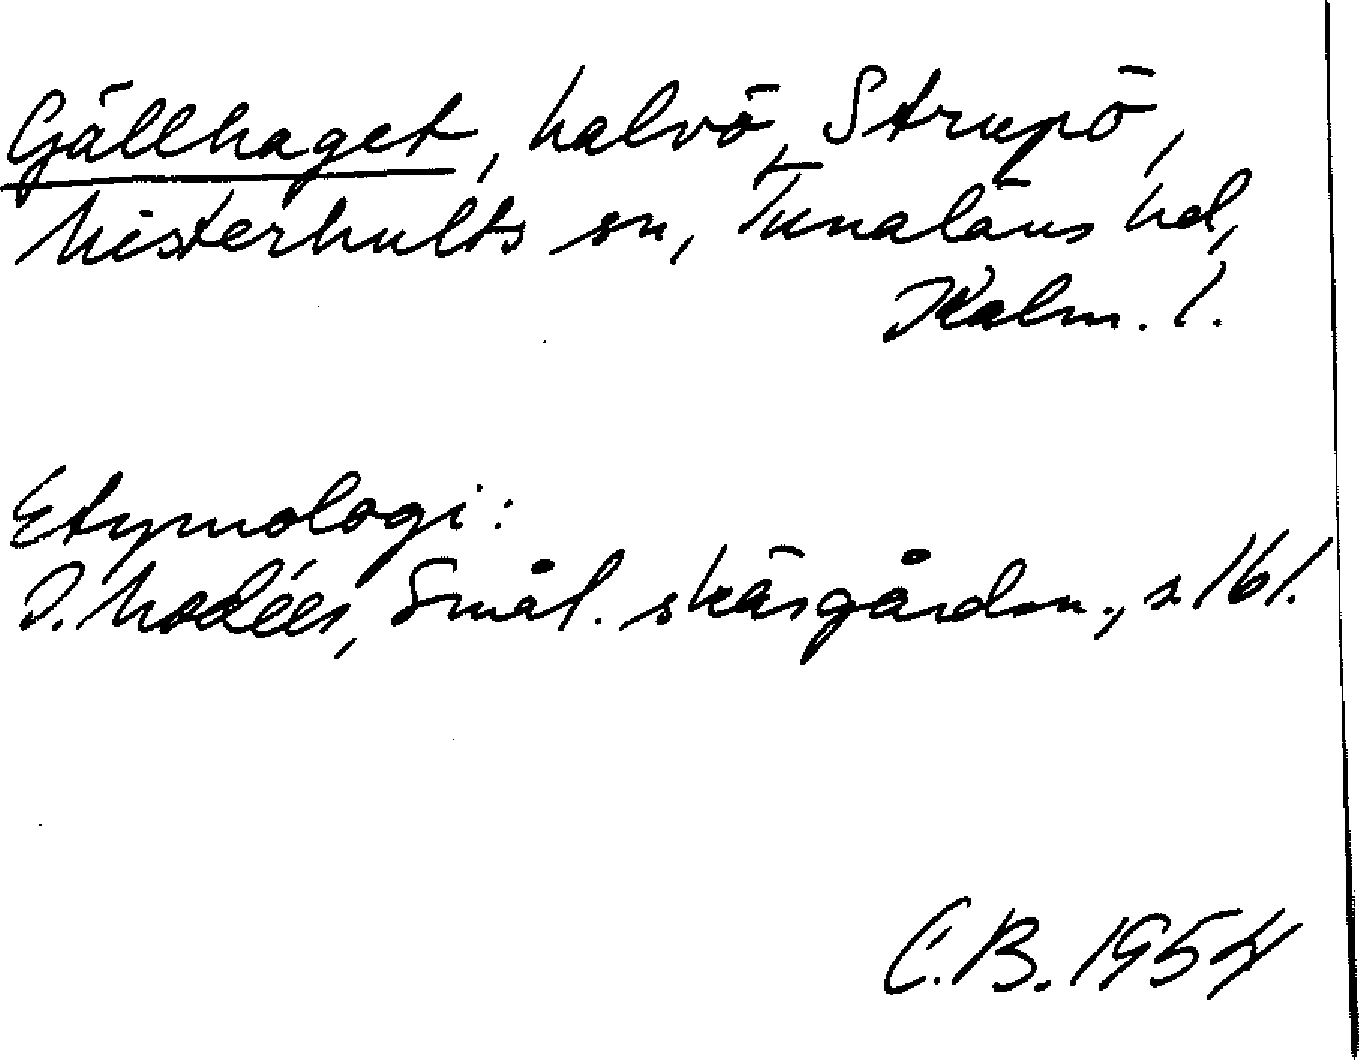 Gällhaget, halvö, Strupö,
Misterhults sn, Tunaläns hd,
Kalm. l.
Etymologi:
I. Modéer, Smål. skärgårdsn., s. 161.
C.B. 1954